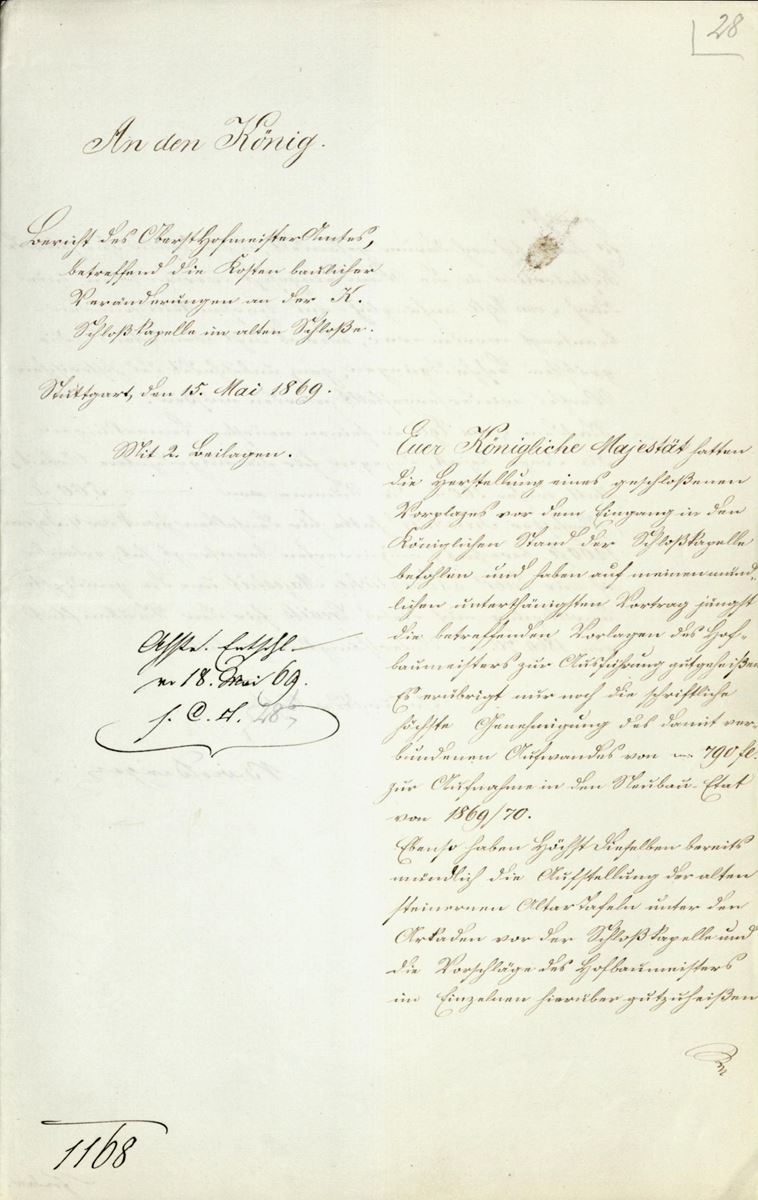 28
An den König.
Bericht des Obersthofmeister Amtes,
betreffend die Kosten baulicher
Veränderungen an der K.
Schloßkapelle im alten Schloße.
Stuttgart, den 15. Mai 1869.
Mit 2. Beilagen.
Euer Königliche Majestät hatten
die Herstellung eines geschloßenen
Vorplazes vor dem Eingang in den
Königlichen Stand der Schloßkapelle
befohlen und haben auf meinen münd-
lichen unterthänigsten Vortrag jüngst
die betreffenden Vorlagen des Hof-
baumeisters zur Ausführung gutgeheißen.
Es erübrigt nur noch die schriftliche
höchste Genehmigung des damit ver-
bundenen Aufwandes von 790 fl.
zur Aufnahme in den Neubau-Etat
von 1869/70.
Ebenso haben Höchst Dieselben bereits
mündlich die Aufstellung der alten
steinernen Altar Tafeln unter den
Arkaden vor der Schloßkapelle und
die Vorschläge des Hofbaumeisters
im Einzelnen hierüber gutzuheißen
Entschl.
18. Mai 69.
1168